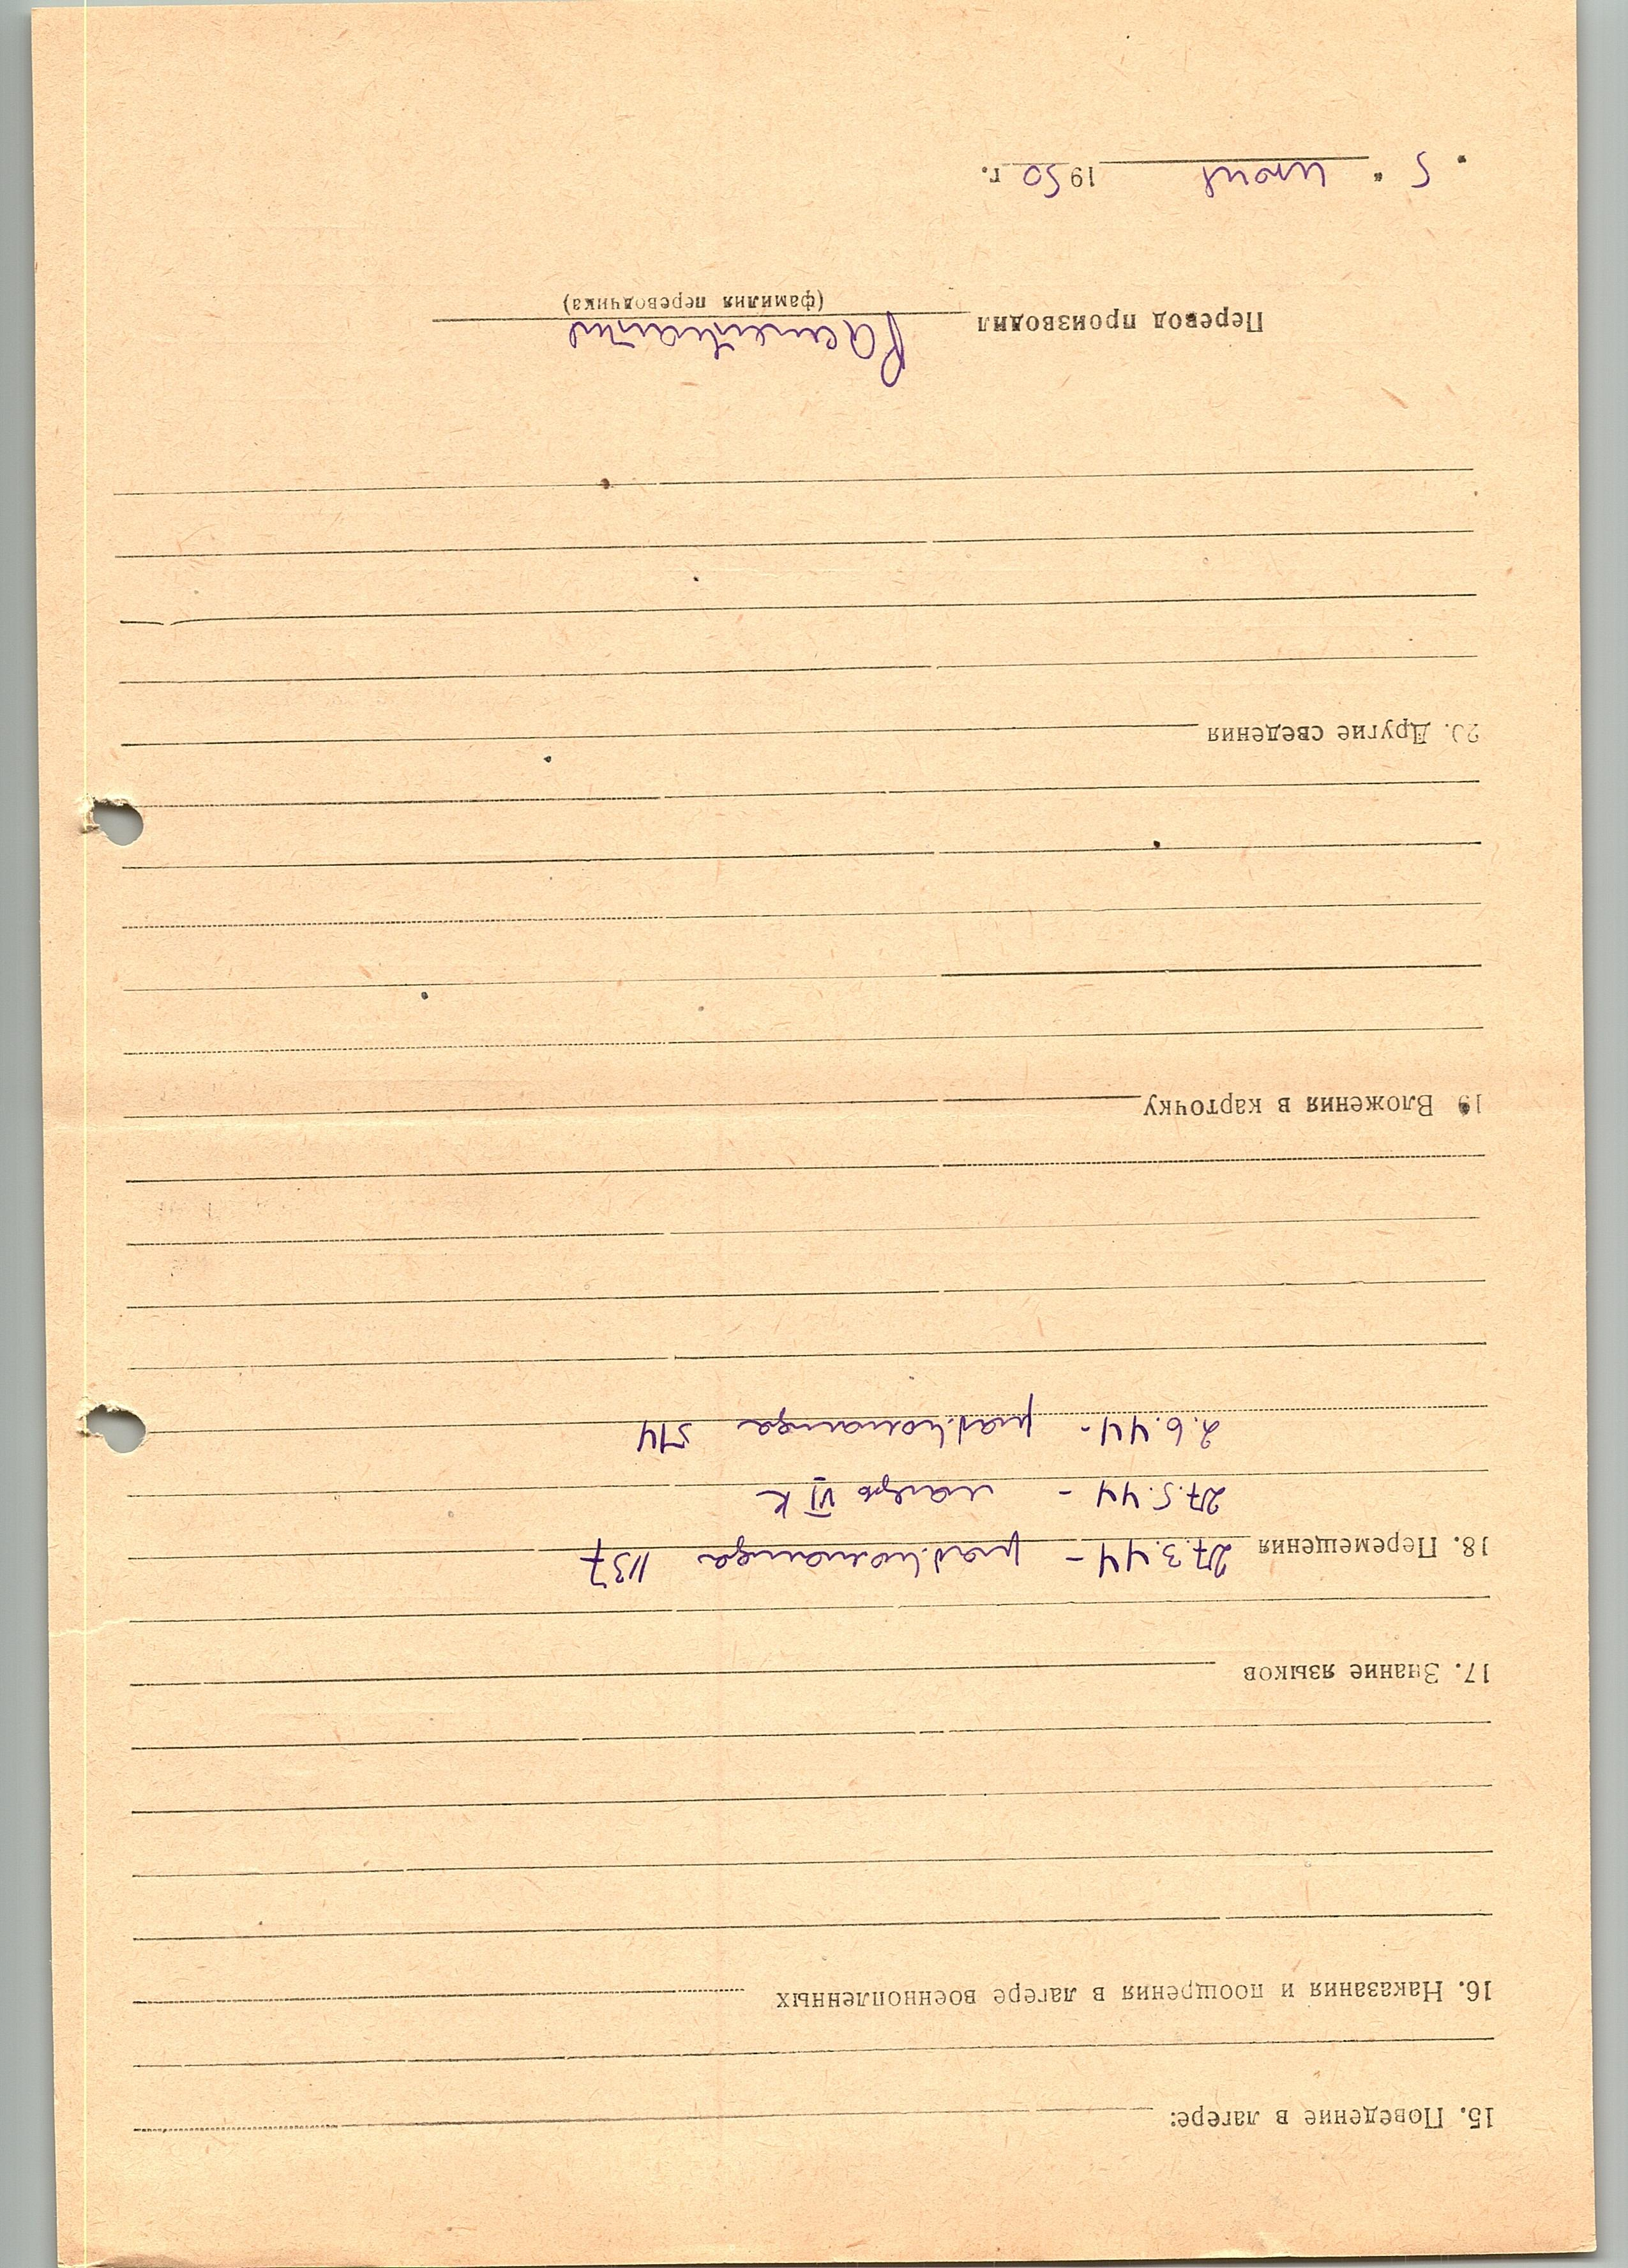 15. Поведение в лагере:
16. Наказания и поощрения в лагере военнопленных
17. Знание языков
18. Перемещения 27.3.44 – раб. команда 1137
27.5.44 – лагерь VI К
2.6.44 – раб. команда 514
19. Вложения в карточку
20. Другие сведения
Перевод производил
(фамилия переводчика)
" 5 " июня 1950 г.